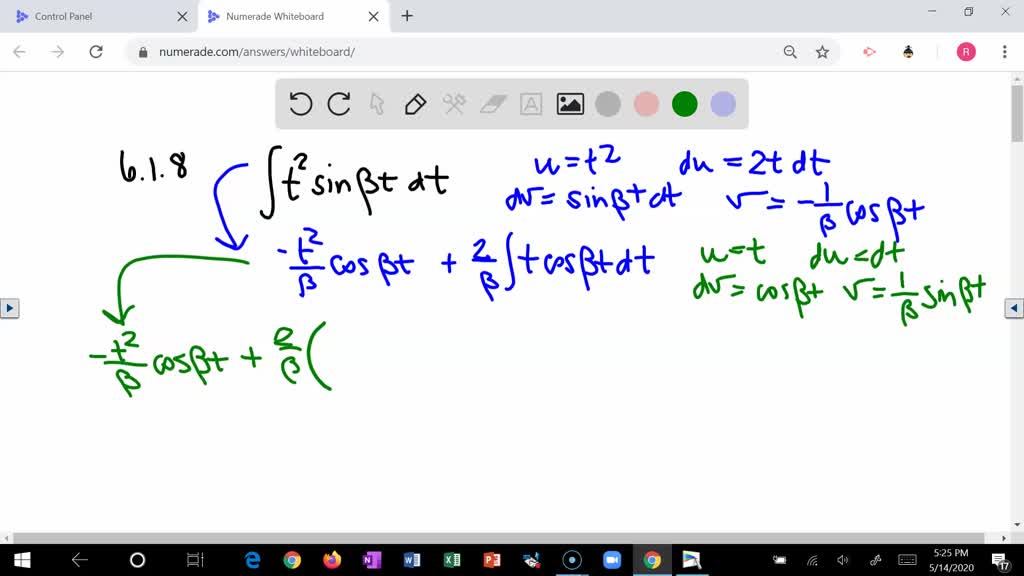 Control Panel
Numerade Whiteboard
numerade.com/answers/whiteboard/
R
A
6.1.8
∫t² sinβt dt
u = t² du = 2t dt
dv = sinβt dt v = -1/β cosβt
-t²/β cosβt + 2/β ∫t cosβt dt
u = t du = dt
dv = cosβt v = 1/β sinβt
-t²/β cosβt + 2/β (
5:25 PM
5/14/2020
17